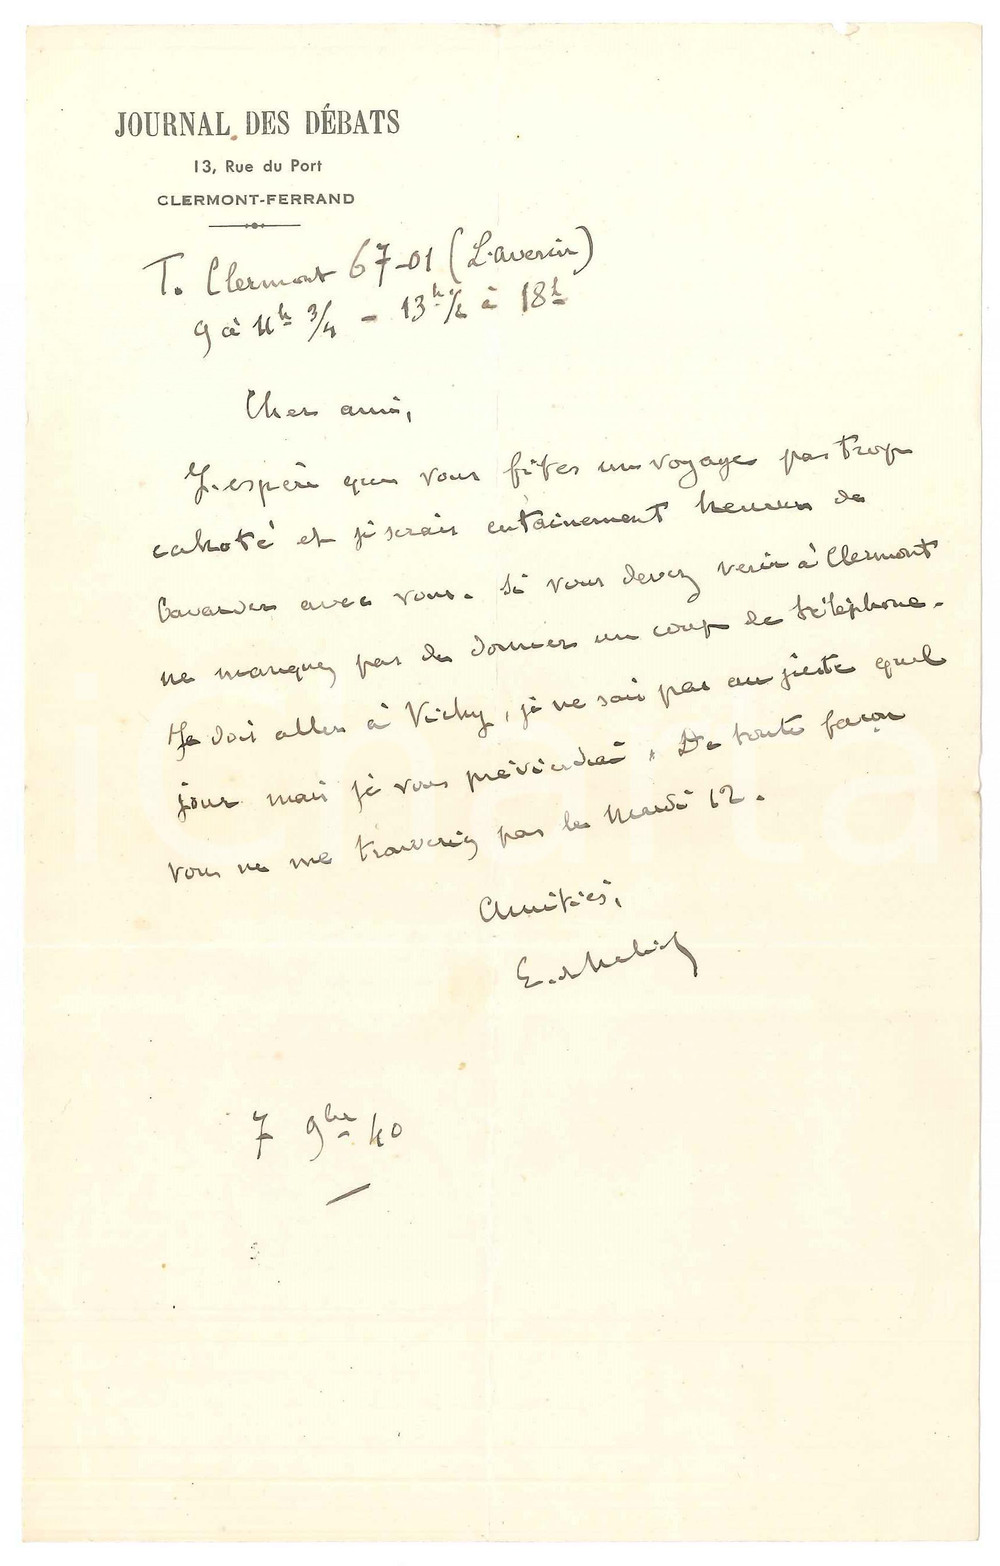 JOURNAL DES DÉBATS
13, Rue du Port
CLERMONT-FERRAND
T. Clermont 67-01 (L'avenir)
9 à 11h 3/4 - 13h 1/2 à 18h
Cher ami,
J'espère que vous fîtes un voyage pas trop
cahoté et je serais certainement heureux de
bavarder avec vous. Si vous devez venir à Clermont
ne manquez pas de donner un coup de téléphone.
Je dois aller à Vichy, je ne sais pas au juste quel
jour mais je vous préviendrai. De toute façon
vous ne me trouveriez pas le Mardi 12.
Amitiés,
E. de
7 9bre 40